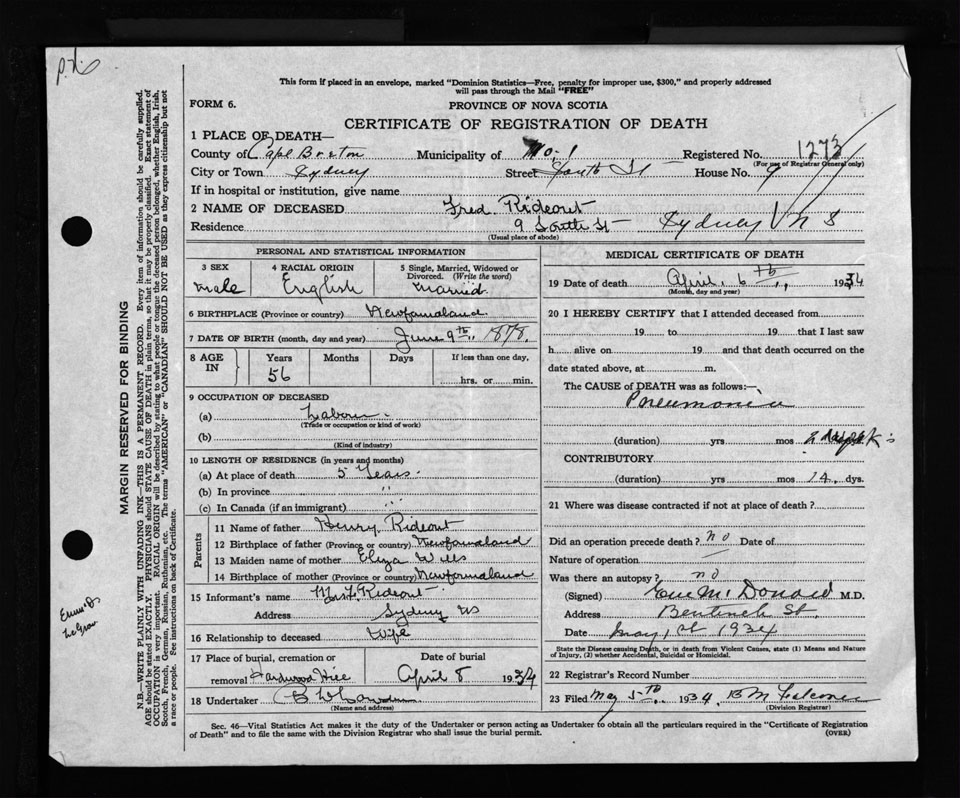 This form if placed in an envelope, marked "Dominion Statistics—Free, penalty for improper use, $300," and properly addressed
will pass through the Mail "FREE"
FORM 6.
PROVINCE OF NOVA SCOTIA
CERTIFICATE OF REGISTRATION OF DEATH
1 PLACE OF DEATH—
County of Cape Breton Municipality of No. 1 Registered No. 1273
(For use of Registrar General only)
City or Town Sydney Street South St House No. 9
If in hospital or institution, give name
2 NAME OF DECEASED Fred. Rideout
Residence 9 South St Sydney N S
(Usual place of abode)
PERSONAL AND STATISTICAL INFORMATION
3 SEX
Male
4 RACIAL ORIGIN
English
5 Single, Married, Widowed or
Divorced. (Write the word)
Married.
6 BIRTHPLACE (Province or country) Newfoundland.
7 DATE OF BIRTH (month, day and year) June 9th, 1878.
8 AGE IN
Years Months Days If less than one day,
56 hrs. or min.
9 OCCUPATION OF DECEASED
(a) Labour.
(Trade or occupation or kind of work)
(b)
(Kind of industry)
10 LENGTH OF RESIDENCE (in years and months)
(a) At place of death 5 Years.
(b) In province "
(c) In Canada (if an immigrant) "
Parents
11 Name of father Henry Rideout
12 Birthplace of father (Province or country) Newfoundland
13 Maiden name of mother Eliza Wills
14 Birthplace of mother (Province or country) Newfoundland
15 Informant's name Mrs F. Rideout
Address Sydney NS
16 Relationship to deceased Wife
17 Place of burial, cremation or Date of burial
removal Hardwood Hill April 8 1934
18 Undertaker
(Name and address)
MEDICAL CERTIFICATE OF DEATH
19 Date of death April 6th, 1934
(Month, day and year)
20 I HEREBY CERTIFY that I attended deceased from
19 to 19 that I last saw
h alive on 19 and that death occurred on the
date stated above, at m.
The CAUSE of DEATH was as follows:—
Pneumonia
(duration) yrs mos 2
CONTRIBUTORY
(duration) yrs mos 14. dys.
21 Where was disease contracted if not at place of death?
Did an operation precede death? no Date of
Nature of operation
Was there an autopsy? no
(Signed) McDonald M.D.
Address Bentinck St.
Date May 1st 1934
State the Disease causing Death, or in death from Violent Causes, state (1) Means and Nature
of Injury, (2) whether Accidental, Suicidal or Homicidal.
22 Registrar's Record Number
23 Filed May 5th, 1934. B M Falconer
(Division Registrar)
Sec. 46—Vital Statistics Act makes it the duty of the Undertaker or person acting as Undertaker to obtain all the particulars required in the "Certificate of Registration
of Death" and to file the same with the Division Registrar who shall issue the burial permit.
(OVER)
MARGIN RESERVED FOR BINDING
N.B.—WRITE PLAINLY WITH UNFADING INK—THIS IS A PERMANENT RECORD. Every item of information should be carefully supplied.
AGE should be stated EXACTLY. PHYSICIANS should STATE CAUSE OF DEATH in plain terms, so that it may be properly classified. Exact statement of
OCCUPATION is very important. RACIAL ORIGIN will be described by stating to what people or tongue the deceased person belonged, whether English, Irish,
Scotch, French, German, Russian, Ruthenian, etc. The terms "AMERICAN" or "CANADIAN" SHOULD NOT BE USED as they express citizenship but not
a race or people. See instructions on back of Certificate.